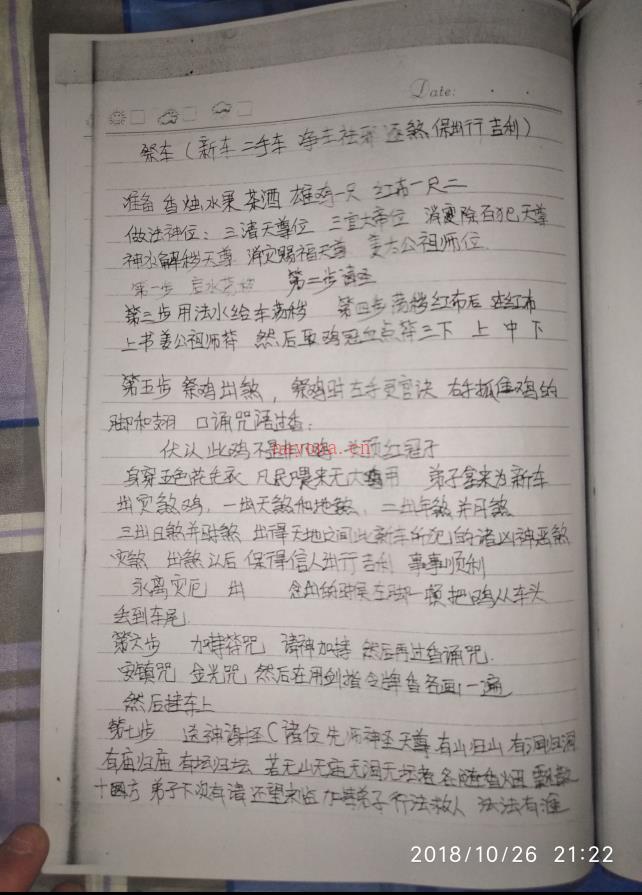 Date:
祭车（新车 二手车 净车祛邪 逐煞 保出行吉利）
准备 香烛水果 茶酒 雄鸡一只 红布一尺二
做法神位：三清天尊位 三官大帝位 消灾除百犯天尊
神水解秽天尊 消灾赐福天尊 姜太公祖师位
第一步 第二步请圣
第三步用法水给车荡秽 第四步荡秽红布后 在红布
上书姜公祖师符 然后取鸡冠血点符三下 上 中 下
第五步 祭鸡出煞，祭鸡时左手 右手抓住鸡的
脚和翅 口诵咒语过香：
伏认此鸡不是非 鸡 头顶红冠子
身穿五色花毛衣 凡民 来无大 用 弟子拿来为新车
出灾煞鸡，一出天煞和地煞，二出年煞并月煞
三出日煞并时煞 出得天地之间此新车所犯的诸凶神恶煞
灾煞 出煞以后 保得信人出行吉利 事事顺利
永离灾厄 出 念出的时候左脚一顿 把鸡从车头
丢到车尾
第六步 加持符咒 请神加持 然后再过香诵咒.
安镇咒 金光咒 然后在用剑指令牌香各画一遍
然后挂车上
第七步 送神 （诸位先师神圣天尊 有山归山 有洞归洞
有庙归庙 有坛归坛 若无山无庙无洞无坛者 各随香烟飘散
十四方 弟子下次有请 还望来临 加持弟子行法救人 法法有准
nayona.cn
2018/10/26 21:22